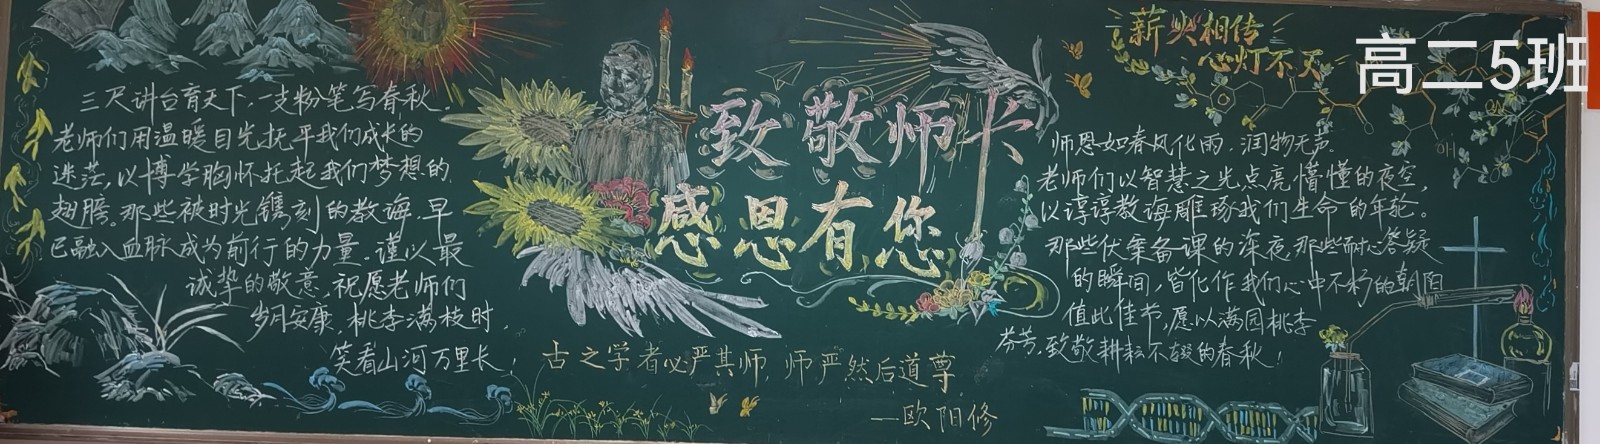 三尺讲台育天下,一支粉笔写春秋。
老师们用温暖目光抚平我们成长的
迷茫,以博学胸怀托起我们梦想的
翅膀。那些被时光镌刻的教诲,早
已融入血脉成为前行的力量。谨以最
诚挚的敬意,祝愿老师们
岁月安康,桃李满枝时,
笑看山河万里长!
致敬师长
感恩有您
古之学者必严其师,师严然后道尊
——欧阳修
薪火相传
心灯不灭
高二5班
师恩如春风化雨,润物无声。
老师们以智慧之光点亮懵懂的夜空,
以谆谆教诲雕琢我们生命的年轮。
那些伏案备课的深夜,那些耐心答疑
的瞬间,皆化作我们心中不朽的朝阳
值此佳节,愿以满园桃李
芬芳,致敬耕耘不辍的春秋!
OH